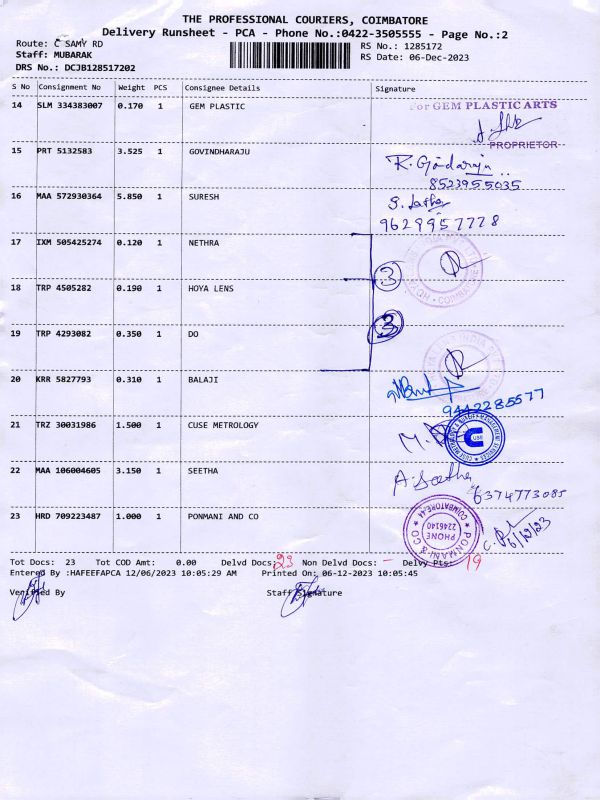 THE PROFESSIONAL COURIERS, COIMBATORE
Delivery Runsheet - PCA - Phone No.:0422-3505555 - Page No.:2
Route: C SAMY RD
RS No.: 1285172
Staff: MUBARAK
RS Date: 06-Dec-2023
DRS No.: DCJB128517202
S No Consignment No Weight PCS Consignee Details Signature
14 SLM 334383007 0.170 1 GEM PLASTIC
For GEM PLASTIC ARTS
PROPRIETOR
15 PRT 5132583 3.525 1 GOVINDHARAJU
8523955035
16 MAA 572930364 5.850 1 SURESH
9629957778
17 IXM 505425274 0.120 1 NETHRA
3
18 TRP 4505282 0.190 1 HOYA LENS
19 TRP 4293082 0.350 1 DO
3
20 KRR 5827793 0.310 1 BALAJI
9442285577
21 TRZ 30031986 1.500 1 CUSE METROLOGY
22 MAA 106004605 3.150 1 SEETHA
A. Seetha
6374773085
23 HRD 709223487 1.000 1 PONMANI AND CO
PONMANI & CO
COIMBATORE-44
PHONE
2246140
6/12/23
Tot Docs: 23 Tot COD Amt: 0.00 Delvd Docs: 23 Non Delvd Docs: - Delvy Pts: 19
Entered By :HAFEEFAPCA 12/06/2023 10:05:29 AM Printed On: 06-12-2023 10:05:45
Verified By Staff Signature